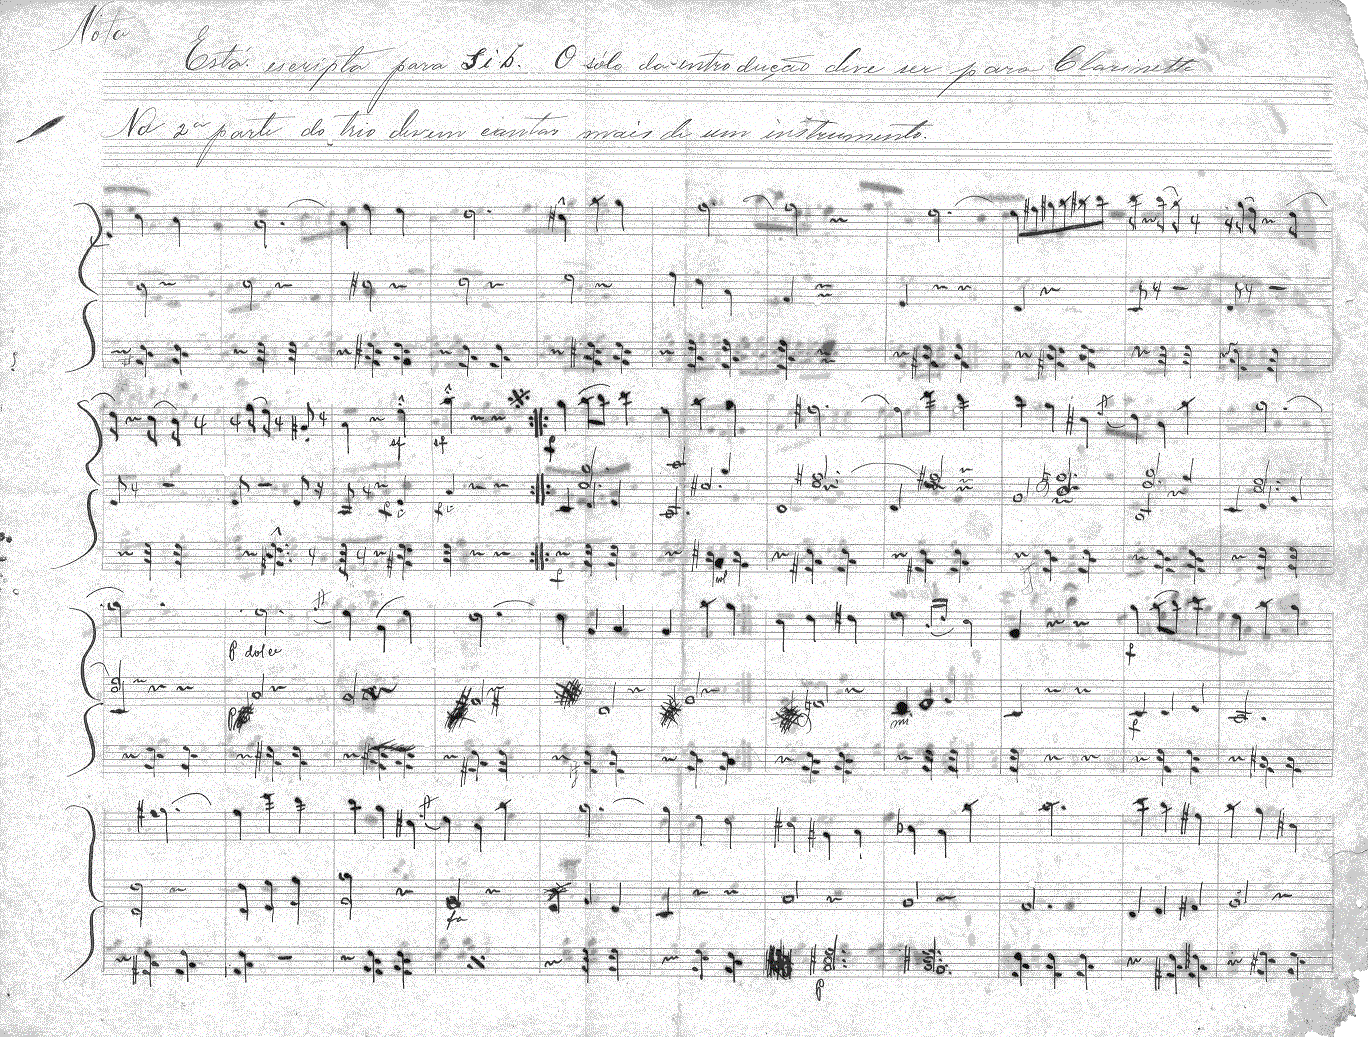 Nota
Está escripta para Sib. O sólo da introdução deve ser para Clarinette
Na 2ª parte do trio devem cantar mais de um instrumento.
sf sf p
f
p dolce
f
p
f
fa
p